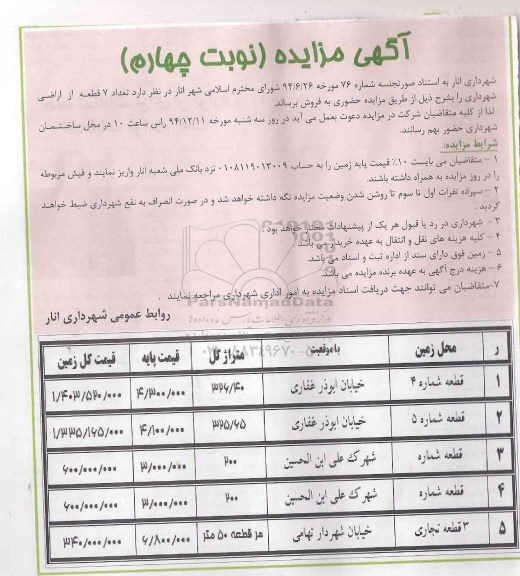 آگهی مزایده (نوبت چهارم)
شهرداری انار به استناد صورتجلسه شماره ۷۶ مورخه ۹۴/۶/۲۶ شورای محترم اسلامی شهر انار در نظر دارد تعداد ۷ قطعه از اراضی
شهرداری را بشرح ذیل از طریق مزایده حضوری به فروش برساند.
لذا از کلیه متقاضیان شرکت در مزایده دعوت بعمل می آید در روز سه شنبه مورخه ۹۴/۱۲/۱۱ راس ساعت ۱۰ در محل ساختمان
شهرداری حضور بهم رسانند.
شرایط مزایده:
۱ - متقاضیان می بایست ۱۰٪ قیمت پایه زمین را به حساب ۰۱۰۸۱۱۹۰۱۳۰۰۹ نزد بانک ملی شعبه انار واریز نمایند و فیش مربوطه
را در روز مزایده به همراه داشته باشند.
۲ - سپرده نفرات اول تا سوم تا روشن شدن وضعیت مزایده نگه داشته خواهد شد و در صورت انصراف به نفع شهرداری ضبط خواهد
گردید.
۳ - شهرداری در رد یا قبول هر یک از پیشنهادات مختار خواهد بود.
۴ - کلیه هزینه های نقل و انتقال به عهده خریدار می باشد.
۵ - زمین فوق دارای سند از اداره ثبت و اسناد می باشد.
۶ - هزینه درج آگهی به عهده برنده مزایده می باشد.
۷-متقاضیان می توانند جهت دریافت اسناد مزایده به امور اداری شهرداری مراجعه نمایند.
ParsNamadData
روابط عمومی شهرداری انار
ر محل زمین باموقعیت متراژ کل قیمت پایه قیمت کل زمین
۱ قطعه شماره ۴ خیابان ابوذر غفاری ۳۲۶/۴۰ ۴/۳۰۰/۰۰۰ ۱/۴۰۳/۵۲۰/۰۰۰
۲ قطعه شماره ۵ خیابان ابوذر غفاری ۳۲۵/۶۵ ۴/۱۰۰/۰۰۰ ۱/۳۳۵/۱۶۵/۰۰۰
۳ قطعه شماره شهرک علی ابن الحسین ۲۰۰ ۳/۰۰۰/۰۰۰ ۶۰۰/۰۰۰/۰۰۰
۴ قطعه شماره شهرک علی ابن الحسین ۲۰۰ ۳/۰۰۰/۰۰۰ ۶۰۰/۰۰۰/۰۰۰
۵ ۳ قطعه تجاری خیابان شهردار تهامی هر قطعه ۵۰ متر ۶/۸۰۰/۰۰۰ ۳۴۰/۰۰۰/۰۰۰